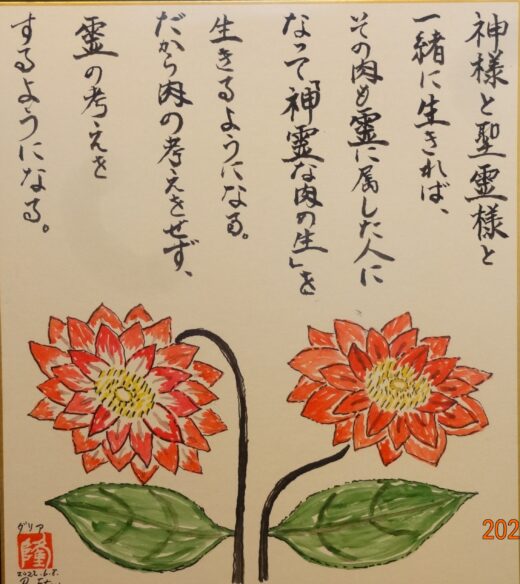 神様と聖霊様と
一緒に生きれば、
その肉も霊に属した人に
なって「神霊な肉の生」を
生きるようになる。
だから肉の考えをせず、
霊の考えを
するようになる。
ダリア
隆
2022.6.8.
202